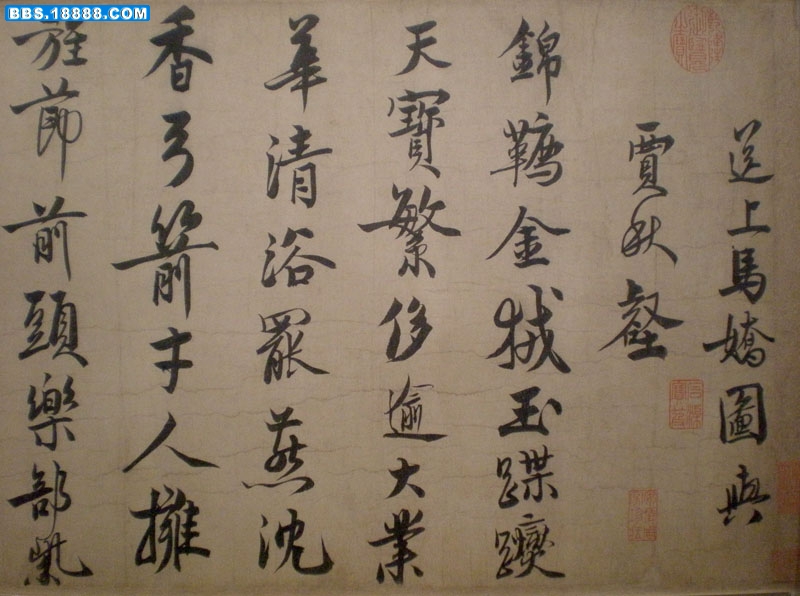 BBS.18888.COM
送上馬嬌圖與
賈秋壑
錦韉金玉蹀躞
天寶繁侈逾大業
華清浴罷燕沈
香弓箭才人擁
旌節前頭樂部